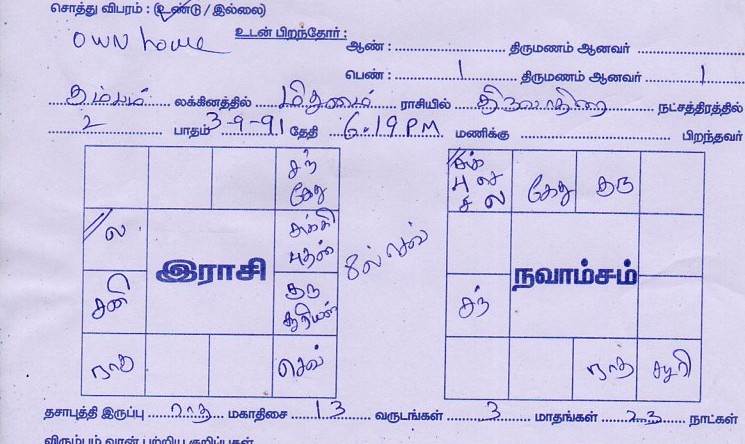 சொத்து விபரம் : (உண்டு / இல்லை)
own house உடன் பிறந்தோர் : ஆண் : திருமணம் ஆனவர்
பெண் : 1 திருமணம் ஆனவர் 1
கும்பம் லக்கினத்தில் மிதுனம் ராசியில் திருவாதிரை நட்சத்திரத்தில்
2 பாதம் 3-9-91 தேதி 6.19 P.M. மணிக்கு பிறந்தவர்
சந்
கேது
ல
சுக்கி
புதன்
இராசி
சனி
குரு
சூரியன்
ராகு
செவ்
8ல் செவ்
சுக்
பு செ
ச ல
கேது
குரு
நவாம்சம்
சந்
ராகு
சூரி
தசாபுத்தி இருப்பு ராகு மகாதிசை 13 வருடங்கள் 3 மாதங்கள் 23 நாட்கள்